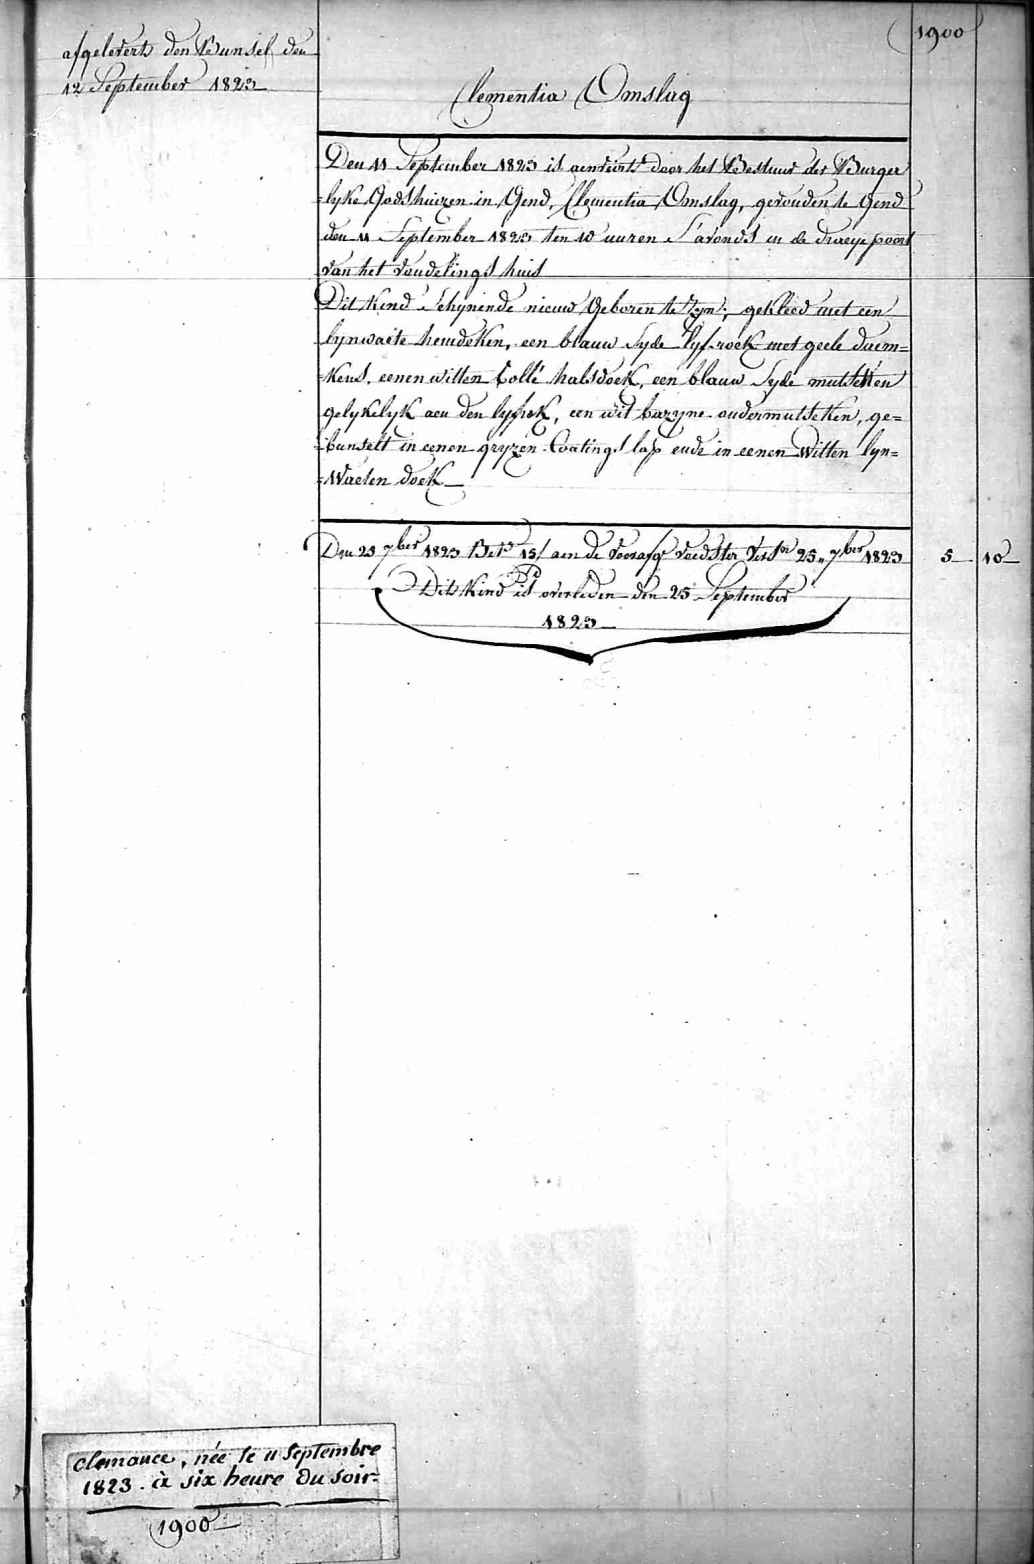 afgelevert den Bunsel den
12 September 1823
1900
Clementia Omslag
Den 11 September 1823 is aenveirt door het Bestuur der Burger
=lyke Godshuizen in Gend, Clementia Omslag, gevonden te Gend
den 11 September 1823 ten 10 uuren S'avonds in de draeye poort
van het vondelings huis
Dit Kind Schynende nieuw Geboren te Zyn; gekleed met een
lynwaete hemdeken, een blauw Syde lyfrock met geele duem=
=kens, eenen witten Collé halsdoek, een blauw Syde mutseken
gelykelyk aen den lyfrok, een wit bazyne ondermutseken, ge=
=bunselt in eenen gryzen Coatings lap ende in eenen Witten lyn=
=Waeten doek
Den 25 7ber 1823 Betd 15/ aen de voorafg voedster Versn 25 7ber 1823 5 10
Dit Kind is overleden den 25 September
1823
Clemance, née le 11 Septembre
1823. à six heure du soir-
1900